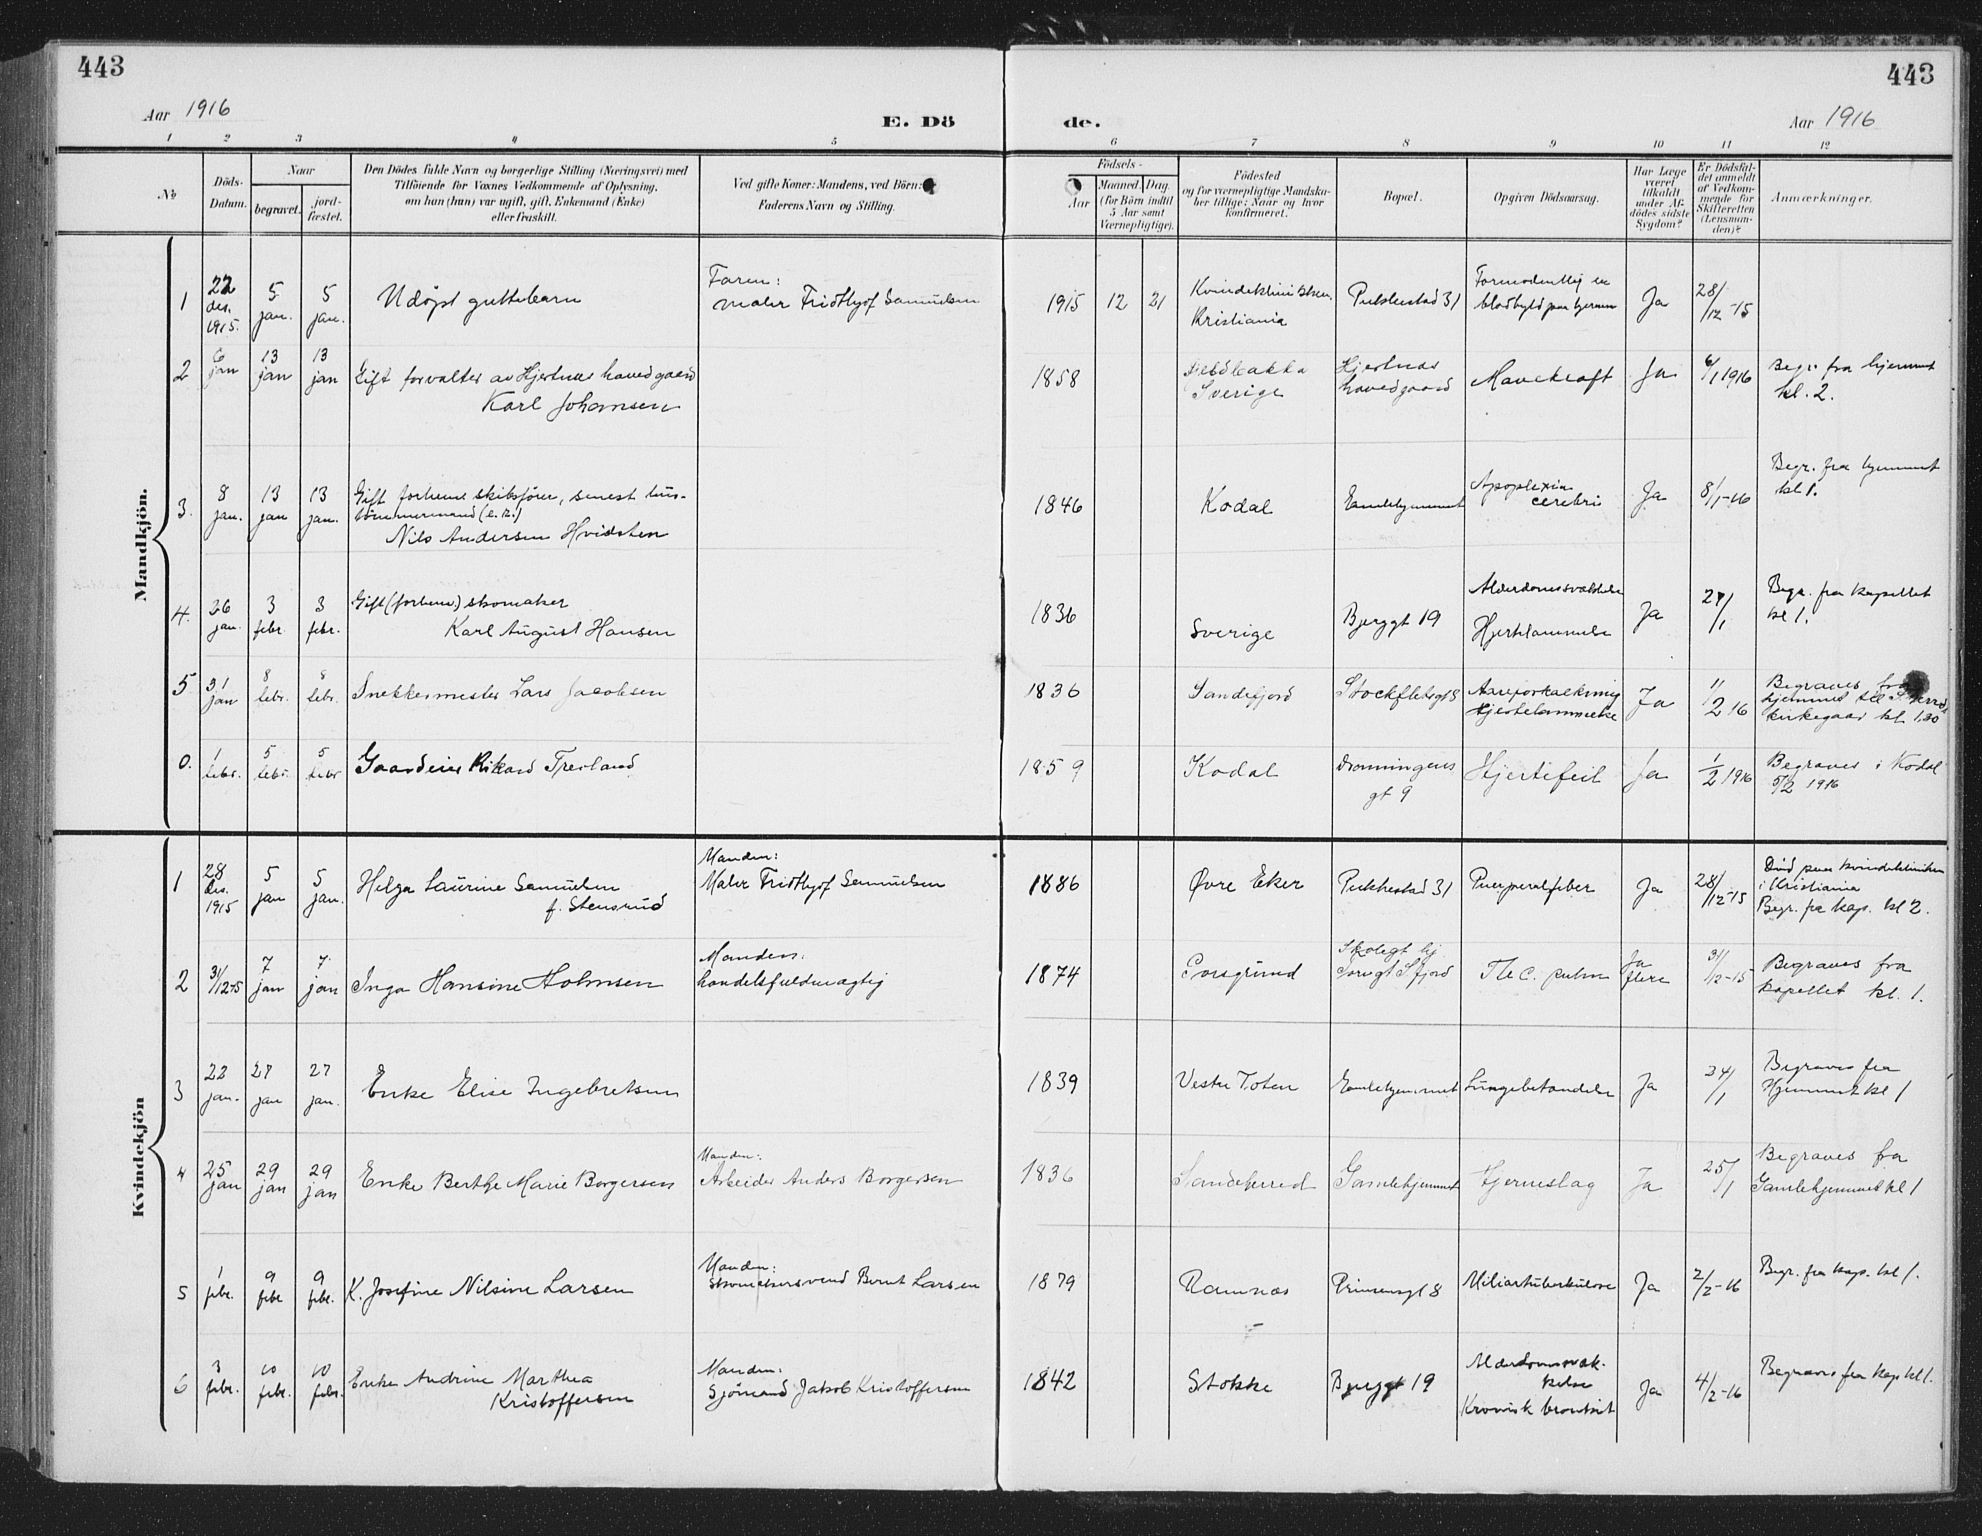 443
443
Aar 1916
E. Dö
de.
Aar 1916
1 2 3 4 5 6 7 8 9 10 11 12
No
Döds-
Datum.
Naar
begravet.
jord-
fæstet.
Den Dödes fulde Navn og borgerlige Stilling (Næringsvei) med
Tilföiende for Voxnes Vedkommende af Oplysning,
om han (hun) var ugift, gift, Enkemand (Enke)
eller fraskilt.
Ved gifte Koner: Mandens, ved Börn:
Faderens Navn og Stilling.
Födsels-
Aar
Maaned. Dag.
(for Börn indtil
5 Aar samt
Værnepligtige).
Födested
og for værnepligtige Mandska-
ber tillige: Naar og hvor
Konfirmeret.
Bopæl.
Opgiven Dödsaarsag.
Har Læge
været
tilkaldt
under Af-
dödes sidste
Sygdom?
Er Dödsfal-
det anmeldt
af Vedkom-
mende for
Skifteretten
(Lensman-
den)?
Anmærkninger.
Mandkjön.
1
22
des.
1915.
5
jan.
5
jan.
Udøpt guttebarn
Faren:
maler Fridthjof Samuelsen
1915 12 21
Kristiania
Pukkestad 31
Formodentlig en
blodbyld paa hjernen
Ja
28/12-15
2
6
jan
13
jan
13
jan
Gift forvalter av Hjertnes hovedgaard
Karl Johansen
1858
Sverige
Hjertnes
hovedgaard
Mavekræft
Ja
6/1 1916
Begr. fra hjemmet
kl. 2.
3.
8
jan.
13
jan
13
jan.
Gift forhenv. skibsfører, senest hus-
tömmermand (e. R.)
Nils Andersen Hvidsten
1846
Kodal
Gamlehjemmet
Apoplexia
cerebri
Ja
8/1-16
Begr. fra hjemmet
kl 1.
4.
26
jan.
3
febr.
3
febr.
Gift (forhenv.) skomaker
Karl August Hansen
1836
Sverige
Bjerggt 19
Alderdomssvakkelse
Hjertelammelse
Ja
27/1
Begr. fra kapellet
kl 1.
5
31
jan
8
febr.
8
febr.
Snekkermester Lars Jacobsen
1836
Sandefjord
Stockfletsgt 8
Aareforkalkning
Hjertelammelse
Ja
1/2 16
Begraves fra
hjemmet til
kirkegaar kl 1,30
6.
1
febr.
5
febr.
5
febr
Gaardeier Rikard Trevland
1859
Kodal
Dronningens
gt 9
Hjertefeil
Ja
1/2 1916
Begraves i Kodal
5/2 1916
Kvindekjön
1
28
des.
1915
5
jan
5
jan.
Helga Laurine Samuelsen
f. Stensrud
Manden:
Maler Fridthjof Samuelsen
1886
Øvre Eker
Pukkestad 31
Puerperalfeber
Ja
28/12-15
Død paa kvindekliniken
i Kristiania
Begr. fra kap. kl 2.
2
31/12-15
7
jan
7.
jan
Inga Hansine Holmsen
Manden:
handelsfuldmægtig
1874
Porsgrund
Skolegt hj
Torvgt S.fjord
Tbc. pulm
Ja
flere
31/12-15
Begraves fra
kapellet kl. 1.
3
22
jan.
27
jan
27
jan.
Enke Elise Ingebretsen
1839
Vestre Toten
Gamlehjemmet
Lungebetændelse
Ja
24/1
Begraves fra
Hjemmet kl 1
4
25
jan
29
jan
29
jan
Enke Berthe Marie Borgersen
Manden:
Arbeider Anders Borgersen
1836
Sandeherred
Gamlehjemmet
Hjerneslag
Ja
25/1
Begraves fra
Gamlehjemmet kl 1
5
1
febr.
9
febr
9
febr.
K. Josefine Nilsine Larsen
Manden:
Skomakersvend Bernt Larsen
1879
Ramnes
Prinsensgt 8
Miliærtuberkulose
Ja
2/2-16
Begr. fra kap. kl 1.
6
3
febr.
10
febr.
10
febr.
Enke Andrine Marthea
Kristoffersen
Manden:
Sjömand Jakob Kristoffersen
1842
Stokke
Bjerggt 19
Alderdomssvæk-
kelse
Kronisk bronkit
Ja
4/2-16
Begraves fra kap kl 1.